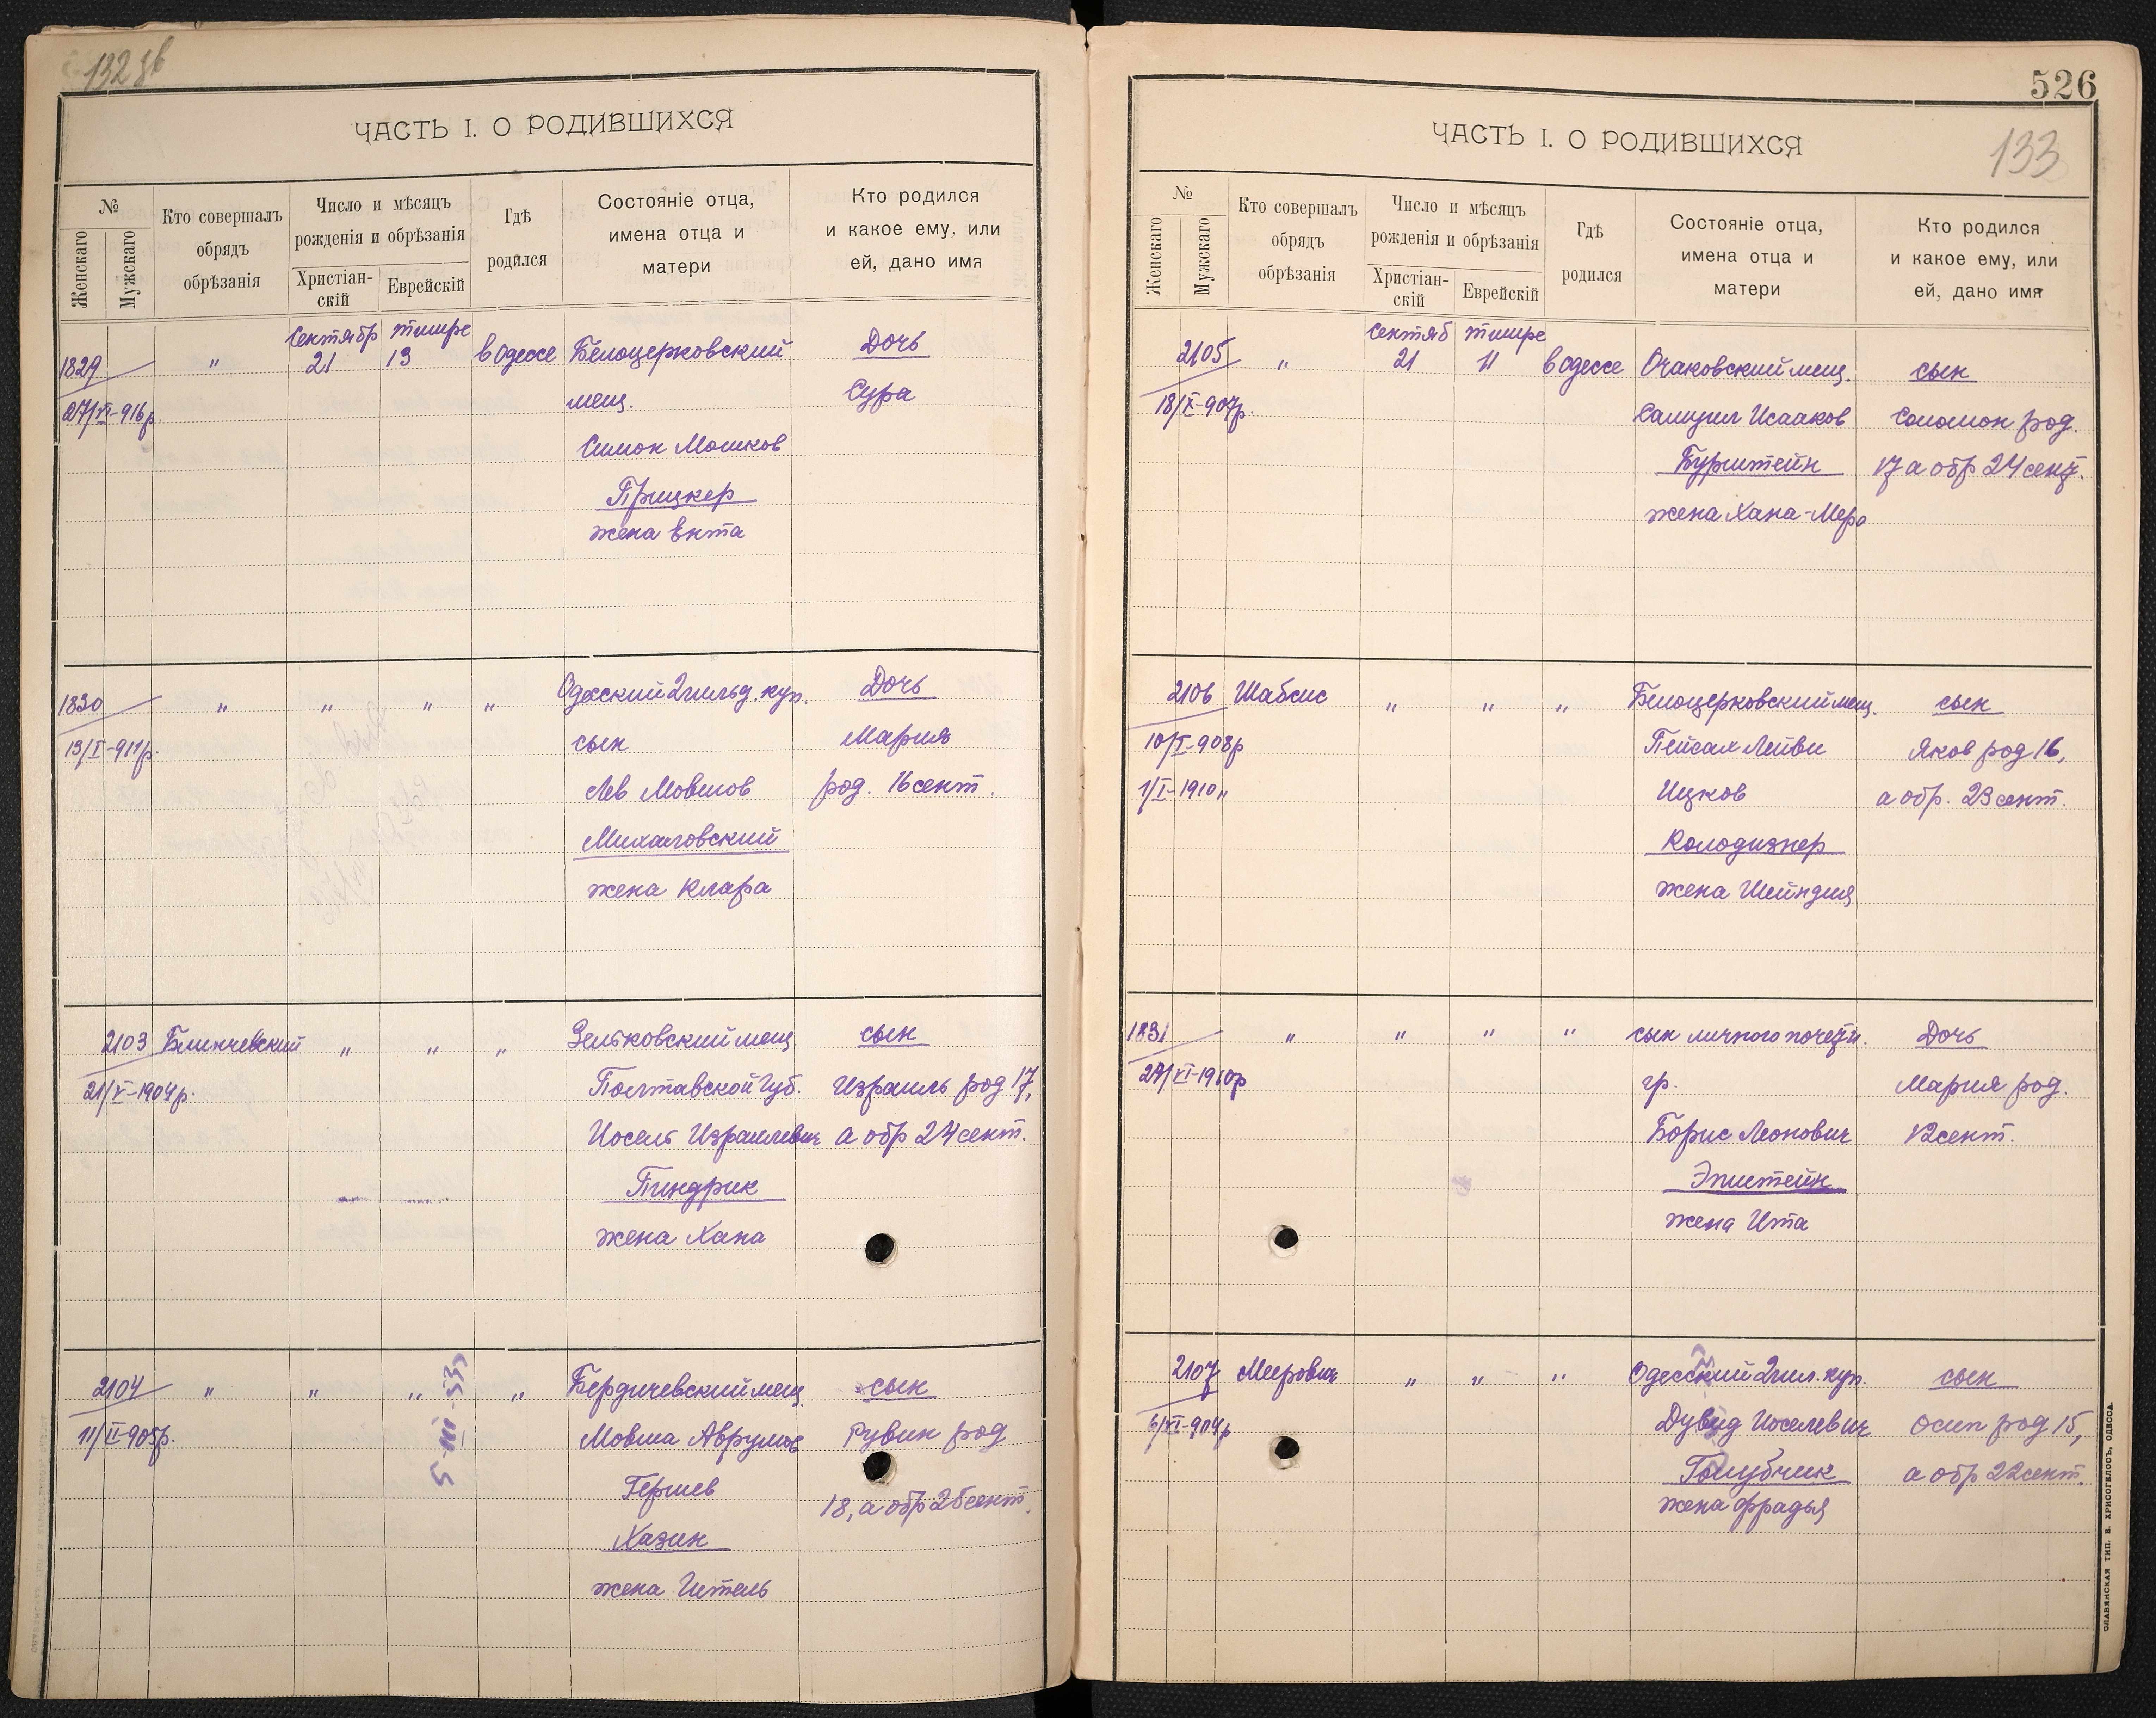 132 зв
ЧАСТЬ I. О РОДИВШИХСЯ
№
Женскаго
Мужскаго
Кто совершалъ
обрядъ
обрѣзанія
Число и мѣсяцъ
рожденія и обрѣзанія
Христіан-
скій
Еврейскій
Гдѣ
родился
Состояніе отца,
имена отца и
матери
Кто родился
и какое ему, или
ей, дано имя
сентябр тишре
1829 " 21 13 в Одессе Белоцерковский Дочь
27/VI-916р. мещ. Сура
Симон Мошков
Прицкер
жена Ента
1830 " " " " Одесский 2 гильд. куп. Дочь
13/I-911р. сын Мария
Лев Мовшов род. 16 сент.
Михаловский
жена Клара
2103 Блинчевский " " " Зеньковский мещ сын
21/V-1904р. Полтавской губ. Израиль род 17,
Иосель Израилевич а обр 24 сент.
Пиндрик
жена Хана
2104 " " " " Бердичевский мещ сын
11/II-905р. Мовша Аврумов Рувин род
5-III-33
Гершев 18, а обр 25 сент.
Хазин
жена Гитель
526
133
ЧАСТЬ I. О РОДИВШИХСЯ
№
Женскаго
Мужскаго
Кто совершалъ
обрядъ
обрѣзанія
Число и мѣсяцъ
рожденія и обрѣзанія
Христіан-
скій
Еврейскій
Гдѣ
родился
Состояніе отца,
имена отца и
матери
Кто родился
и какое ему, или
ей, дано имя
сентяб тишре
2105 " 21 11 в Одессе Очаковский мещ. сын
18/X-907р. Самуил Исааков Соломон род.
Бурштейн 17 а обр 24 сент.
жена Хана-Мера
2106 Шабсис " " " Белоцерковский мещ. сын
10/I-908р Пейсах Лейви Яков род 16,
1/I-1910" Ицков а обр. 23 сент.
Колодизнер
жена Шейндля
1831 " " " " сын личного почетн. Дочь
27/VI-1910р гр. Мария род.
Борис Леонович 12 сент.
Эпштейн
жена Ита
2107 Меерович " " " Одесский 2 гил. куп. сын
6/VI-904р Дувид Иоселевич Осип род 15,
Голубчик а обр 22 сент.
жена Фрадья
СЛАВЯНСКАЯ ТИП. Н. ХРИСОГЕЛОСЪ, ОДЕССА.